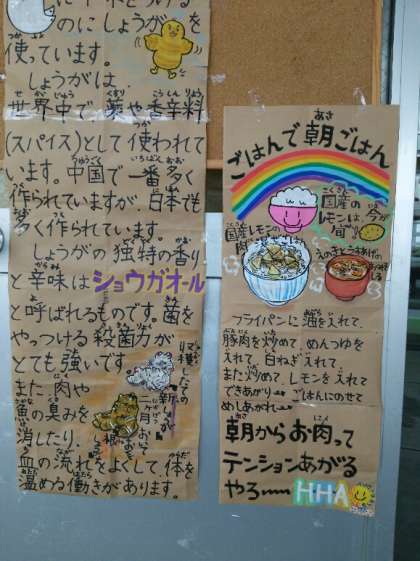 のにしょうがを
使っています。
しょうがは、
世界中で、薬や香辛料
(スパイス)として使われて
います。中国で一番多く
作られていますが、日本でも
多く作られています。
しょうがの独特の香り
と辛味はショウガオール
と呼ばれるものです。菌を
やっつける殺菌力が
とても強いです
また、肉や
魚の臭みを
消したり、
血の流れをよくして、体を
温める働きがあります。
ごはんで朝ごはん
国産の
レモンは、今が
旬
国産レモンの
フライパンに油を入れて、
豚肉を炒めて、めんつゆを
入れて、白ねぎ入れて、
また炒めて、レモンを入れて
できあがり。ごはんにのせて
めしあがれ
朝からお肉って
テンションあがる
やろ〜 HHA